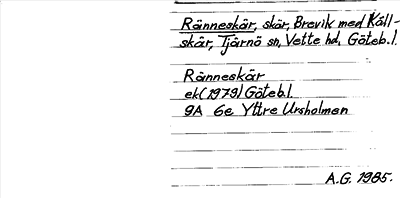 Ränneskär, skär, Brevik med Käll-
skär, Tjärnö sn, Vette hd, Göteb.l.
Ränneskär
ek(1979)Göteb.l.
9A 6e Yttre Ursholmen
A.G. 1985.